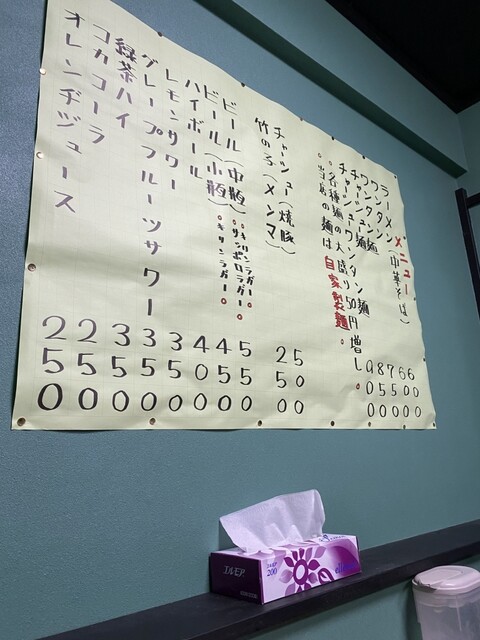 メニュー
ラーメン(中華そば) 600
ワンタン 600
ワンタン麺 750
チャーシュー麺 850
チャーシューワンタン麺 900
。各種麺の大盛り50円増し。
。当店の麺は自家製麺。
チャーシュー(焼豚) 500
竹の子(メンマ) 250
ビール(中瓶)。キリンラガー。 。サッポロラガー。 550
ビール(小瓶)。キリンラガー。 450
ハイボール 400
レモンサワー 350
グレープフルーツサワー 350
緑茶ハイ 350
コカコーラ 250
オレンヂジュース 250
エルモア
エルモア
200
ellemoi